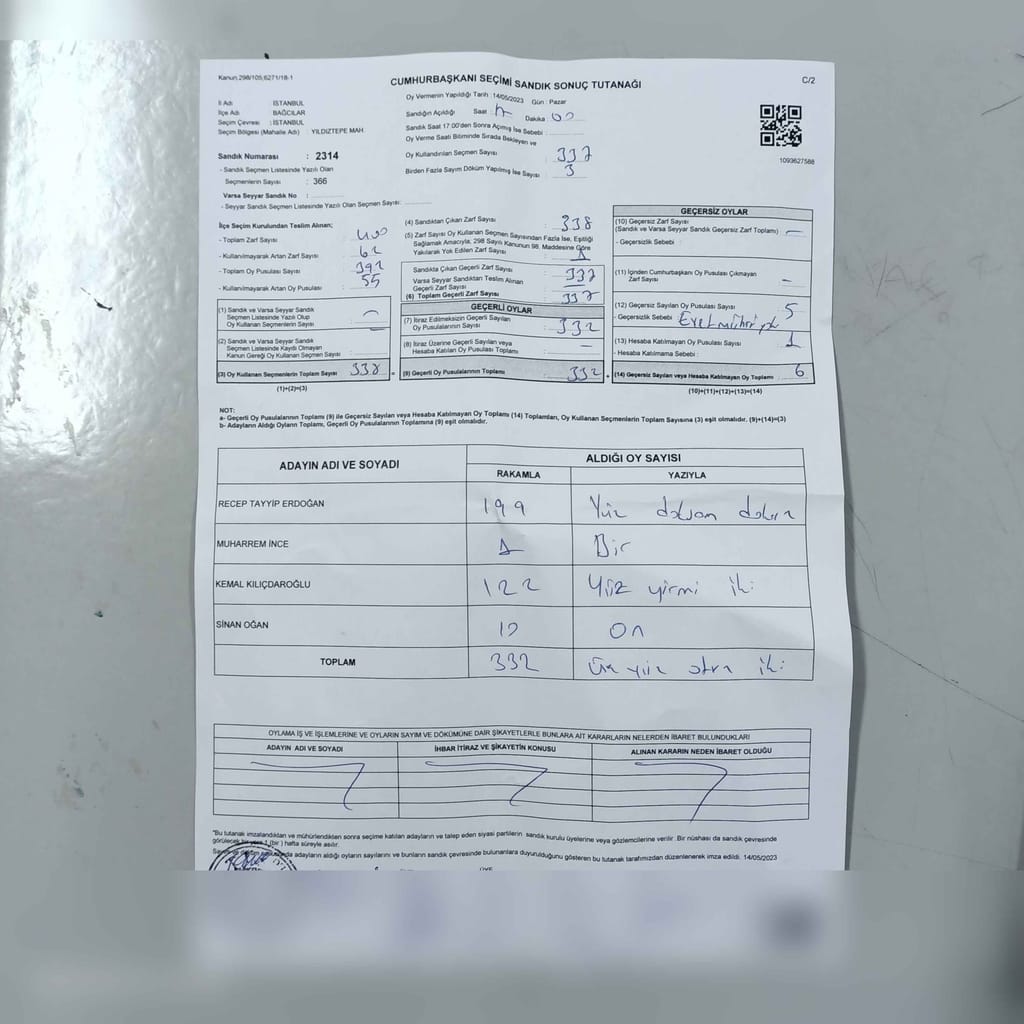 Kanun.298/105;6271/18-1
CUMHURBAŞKANI SEÇİMİ SANDIK SONUÇ TUTANAĞI
C/2
İl Adı : İSTANBUL
İlçe Adı : BAĞCILAR
Seçim Çevresi : İSTANBUL
Seçim Bölgesi (Mahalle Adı) YILDIZTEPE MAH.
Oy Vermenin Yapıldığı Tarih :14/05/2023 Gün : Pazar
Sandığın Açıldığı Saat 17 Dakika 00
Sandık Saat 17:00'den Sonra Açılmış İse Sebebi :
Oy Verme Saati Bitiminde Sırada Bekleyen ve
Oy Kullandırılan Seçmen Sayısı : 337
Birden Fazla Sayım Döküm Yapılmış İse Sayısı : 3
1093627588
Sandık Numarası : 2314
- Sandık Seçmen Listesinde Yazılı Olan
Seçmenlerin Sayısı : 366
Varsa Seyyar Sandık No :
- Seyyar Sandık Seçmen Listesinde Yazılı Olan Seçmen Sayısı:
İlçe Seçim Kurulundan Teslim Alınan;
- Toplam Zarf Sayısı : 400
- Kullanılmayarak Artan Zarf Sayısı : 62
- Toplam Oy Pusulası Sayısı : 392
- Kullanılmayarak Artan Oy Pusulası : 55
(1) Sandık ve Varsa Seyyar Sandık
Seçmen Listesinde Yazılı Olup
Oy Kullanan Seçmenlerin Sayısı : —
(2) Sandık ve Varsa Seyyar Sandık
Seçmen Listesinde Kaydı Olmayan
Kanun Gereği Oy Kullanan Seçmen Sayısı :
(3) Oy Kullanan Seçmenlerin Toplam Sayısı 338 =
(1)+(2)=(3)
(4) Sandıktan Çıkan Zarf Sayısı : 338
(5) Zarf Sayısı Oy Kullanan Seçmen Sayısından Fazla İse, Eşitliği
Sağlamak Amacıyla; 298 Sayılı Kanunun 98. Maddesine Göre
Yakılarak Yok Edilen Zarf Sayısı : 1
Sandıkta Çıkan Geçerli Zarf Sayısı : 337
Varsa Seyyar Sandıktan Teslim Alınan
Geçerli Zarf Sayısı : —
(6) Toplam Geçerli Zarf Sayısı : 337
GEÇERLİ OYLAR
(7) İtiraz Edilmeksizin Geçerli Sayılan
Oy Pusulalarının Sayısı : 332
(8) İtiraz Üzerine Geçerli Sayılan veya
Hesaba Katılan Oy Pusulası Toplamı : —
(9) Geçerli Oy Pusulalarının Toplamı : 332 +
GEÇERSİZ OYLAR
(10) Geçersiz Zarf Sayısı
(Sandık ve Varsa Seyyar Sandık Geçersiz Zarf Toplamı) : —
- Geçersizlik Sebebi :
(11) İçinden Cumhurbaşkanı Oy Pusulası Çıkmayan
Zarf Sayısı : —
(12) Geçersiz Sayılan Oy Pusulası Sayısı : 5
- Geçersizlik Sebebi : Evet mührü yok
(13) Hesaba Katılmayan Oy Pusulası Sayısı : 1
- Hesaba Katılmama Sebebi :
(14) Geçersiz Sayılan veya Hesaba Katılmayan Oy Toplamı : 6
(10)+(11)+(12)+(13)=(14)
NOT:
a- Geçerli Oy Pusulalarının Toplamı (9) ile Geçersiz Sayılan veya Hesaba Katılmayan Oy Toplamı (14) Toplamları, Oy Kullanan Seçmenlerin Toplam Sayısına (3) eşit olmalıdır. (9)+(14)=(3)
b- Adayların Aldığı Oyların Toplamı, Geçerli Oy Pusulalarının Toplamına (9) eşit olmalıdır.
ADAYIN ADI VE SOYADI
ALDIĞI OY SAYISI
RAKAMLA YAZIYLA
RECEP TAYYİP ERDOĞAN 199 Yüz doksan dokuz
MUHARREM İNCE 1 Bir
KEMAL KILIÇDAROĞLU 122 Yüz yirmi iki
SİNAN OĞAN 10 On
TOPLAM 332 Üç yüz otuz iki
OYLAMA İŞ VE İŞLEMLERİNE VE OYLARIN SAYIM VE DÖKÜMÜNE DAİR ŞİKAYETLERLE BUNLARA AİT KARARLARIN NELERDEN İBARET BULUNDUKLARI
ADAYIN ADI VE SOYADI İHBAR İTİRAZ VE ŞİKAYETİN KONUSU ALINAN KARARIN NEDEN İBARET OLDUĞU
"Bu tutanak imzalandıktan ve mühürlendikten sonra seçime katılan adayların ve talep eden siyasi partilerin sandık kurulu üyelerine veya gözlemcilerine verilir. Bir nüshası da sandık çevresinde
görülecek bir yere 1 (bir) hafta süreyle asılır.
adayların aldığı oyların sayılarını ve bunların sandık çevresinde bulunanlara duyurulduğunu gösteren bu tutanak tarafımızdan düzenlenerek imza edildi. 14/05/2023
ÜYE